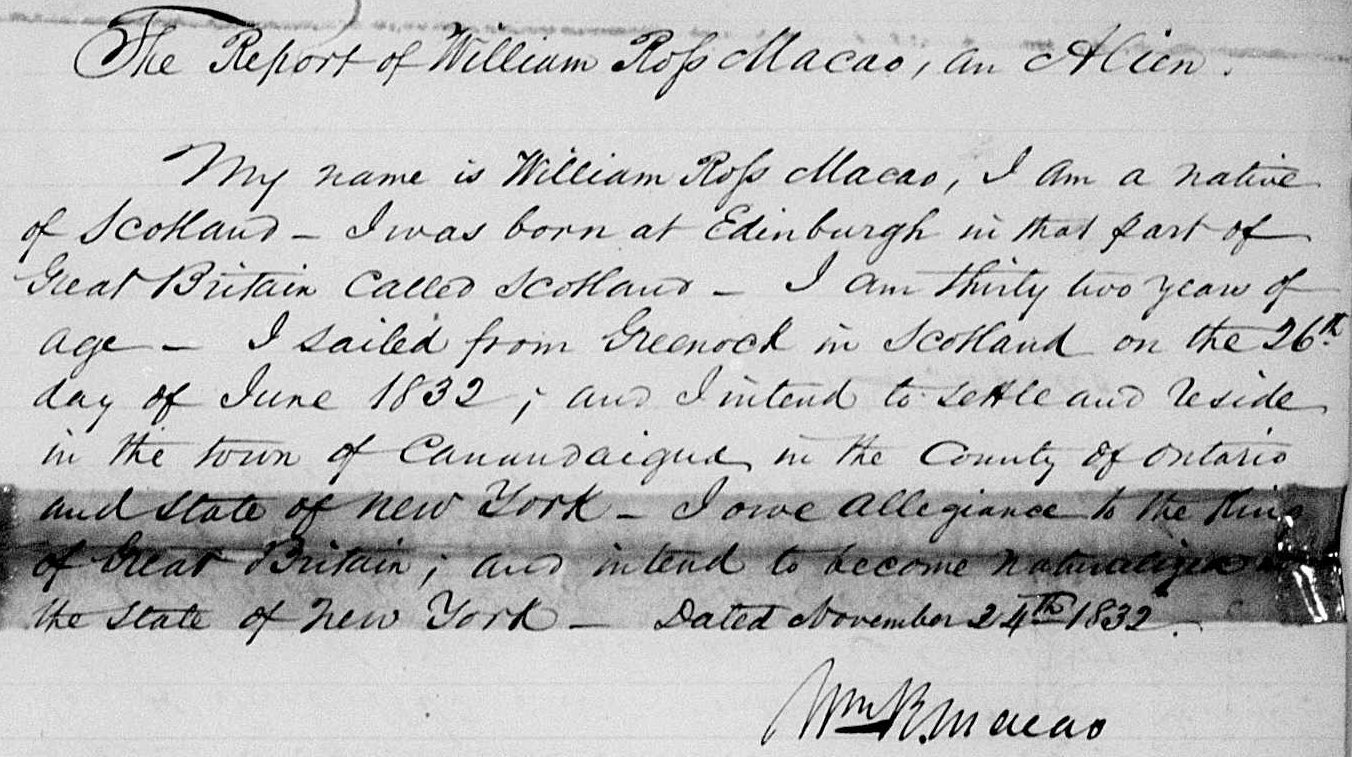 The Report of William Roſs Macao, an Alien.
My name is William Roſs Macao, I am a native
of Scotland – I was born at Edinburgh in that part of
Great Britain called Scotland – I am thirty two years of
age – I sailed from Greenock in Scotland on the 26th
day of June 1832; and I intend to settle and reside
in the town of Canandaigua in the County of Ontario
and State of New York – I owe allegiance to the King
of Great Britain; and intend to become naturalized
the State of New York – Dated November 24th 1832.
Wm R. Macao